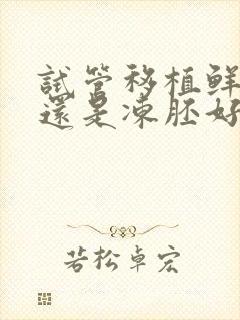 試管移植鮮
還是凍胚好
若松卓宏